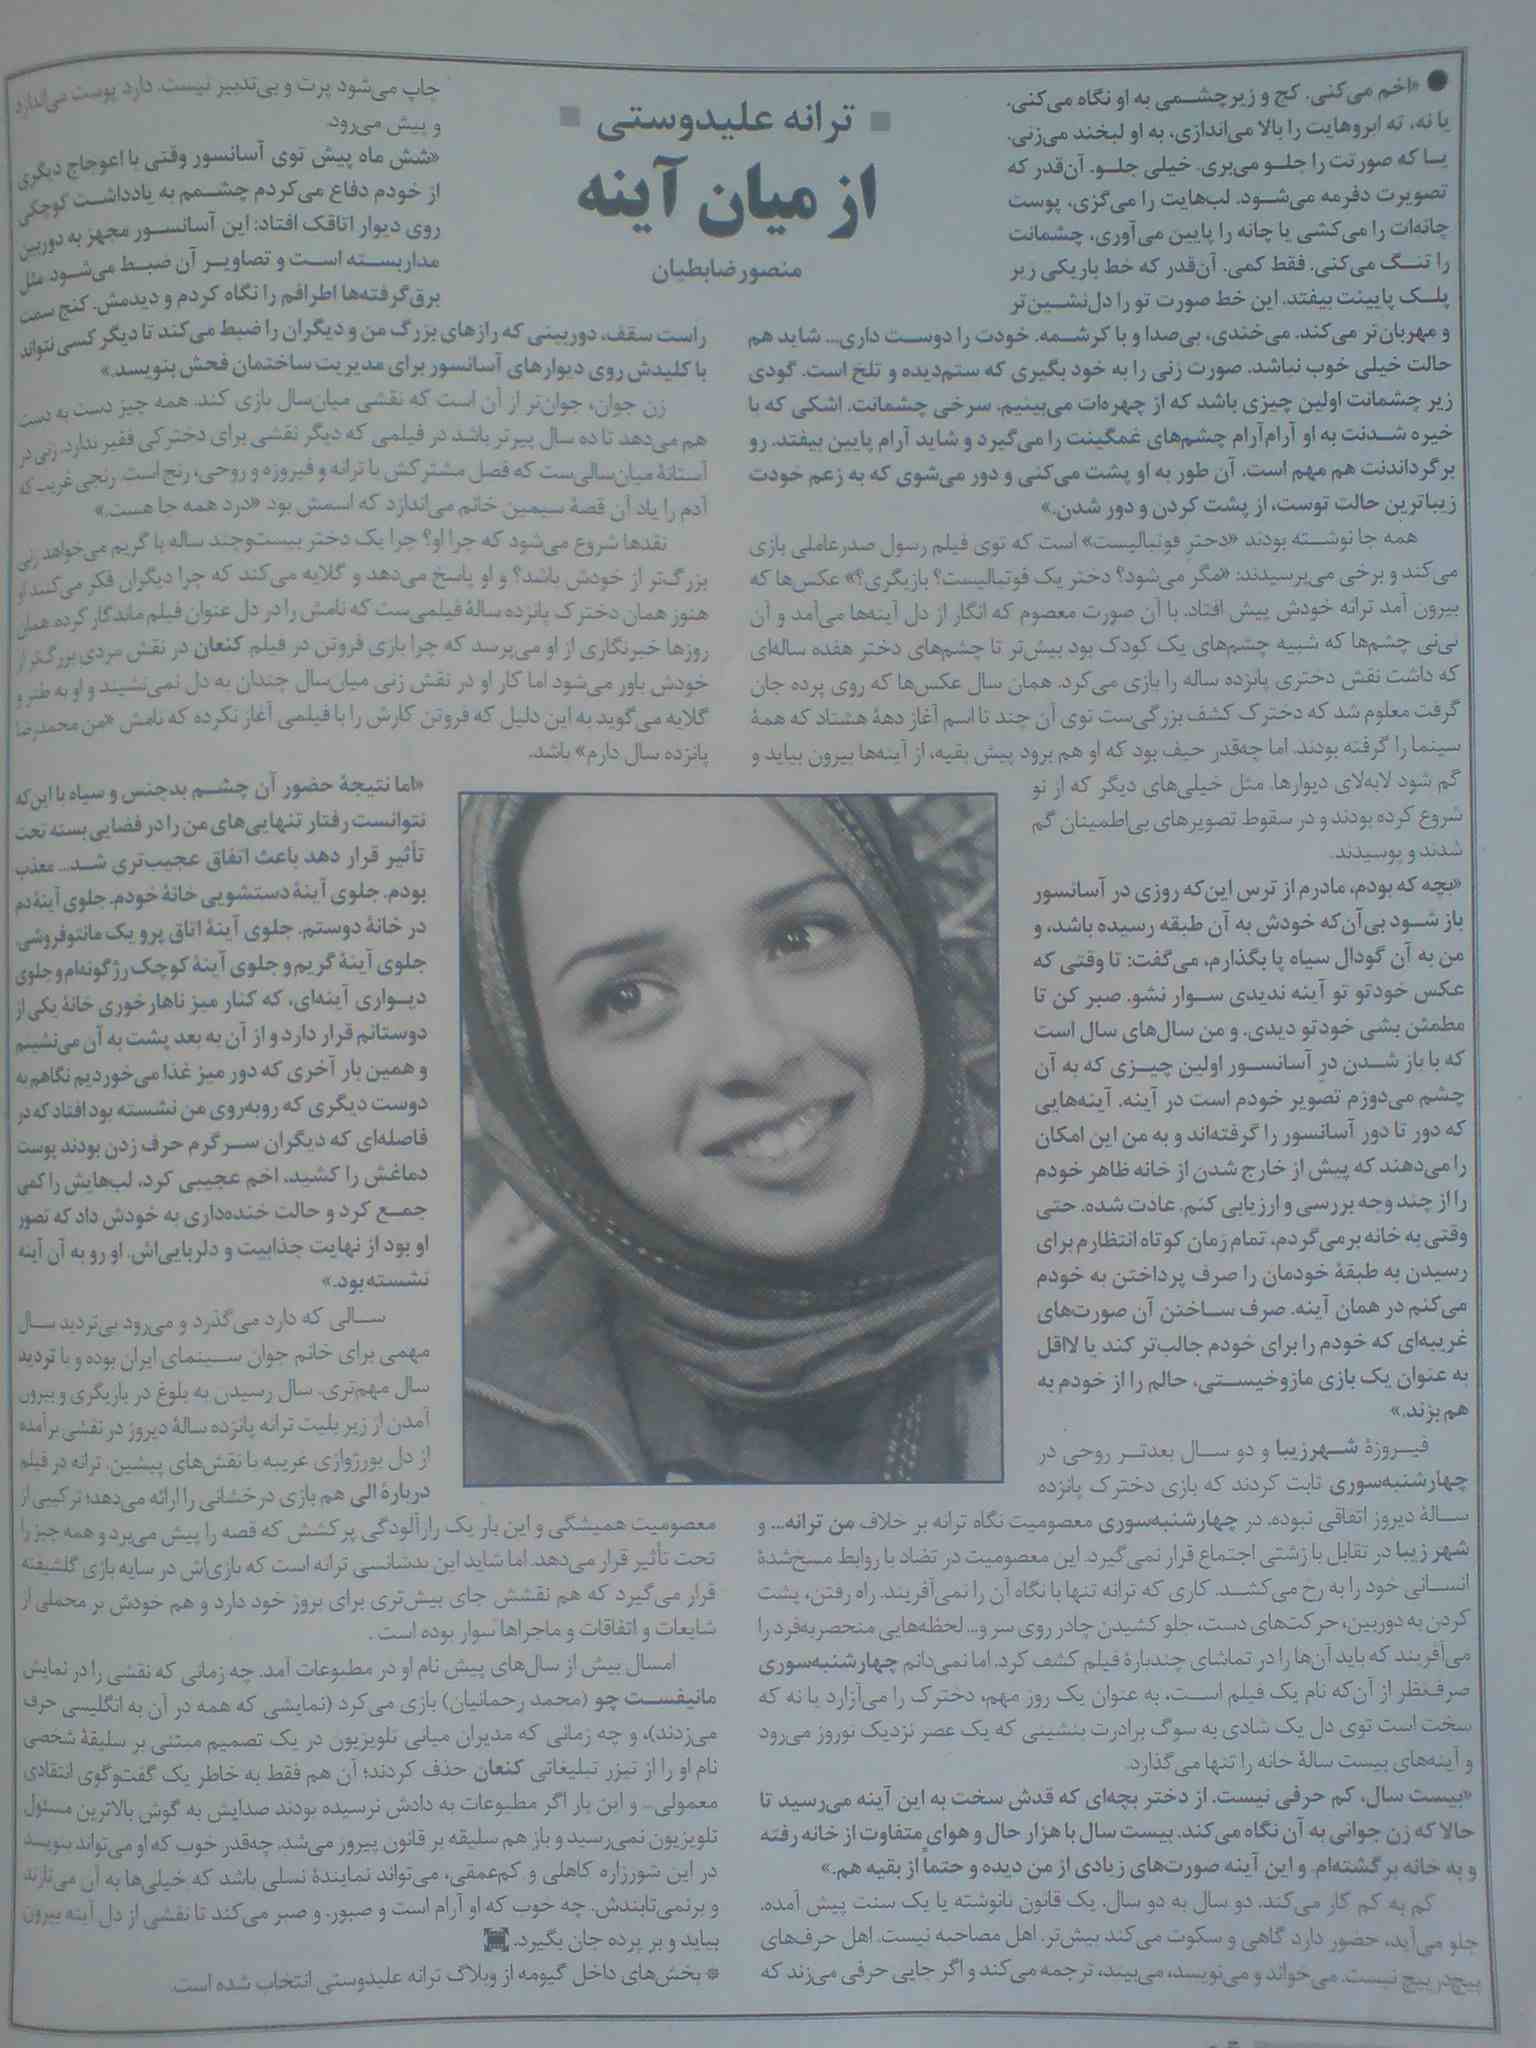 ترانه علیدوستی
از میان آینه
منصور ضابطیان
● «اخم می‌کنی. کج و زیرچشمی به او نگاه می‌کنی.
یا نه، ته ابروهایت را بالا می‌اندازی، به او لبخند می‌زنی.
یا که صورتت را جلو می‌بری. خیلی جلو. آن‌قدر که
تصویرت دفرمه می‌شود. لب‌هایت را می‌گزی، پوست
چانه‌ات را می‌کشی یا چانه را پایین می‌آوری، چشمانت
را تنگ می‌کنی. فقط کمی. آن‌قدر که خط باریکی زیر
پلک پایینت بیفتد. این خط صورت تو را دل‌نشین‌تر
و مهربان‌تر می‌کند. می‌خندی، بی‌صدا و با کرشمه. خودت را دوست داری... شاید هم
حالت خیلی خوب نباشد. صورت زنی را به خود بگیری که ستم‌دیده و تلخ است. گودی
زیر چشمانت اولین چیزی باشد که از چهره‌ات می‌بینیم. سرخی چشمانت. اشکی که با
خیره شدنت به او آرام‌آرام چشم‌های غمگینت را می‌گیرد و شاید آرام پایین بیفتد. رو
برگرداندنت هم مهم است. آن طور به او پشت می‌کنی و دور می‌شوی که به زعم خودت
زیباترین حالت توست، از پشت کردن و دور شدن.»
همه جا نوشته بودند «دختر فوتبالیست» است که توی فیلم رسول صدرعاملی بازی
می‌کند و برخی می‌پرسیدند: «مگر می‌شود؟ دختر یک فوتبالیست؟ بازیگری؟» عکس‌ها که
بیرون آمد ترانه خودش پیش افتاد. با آن صورت معصوم که انگار از دل آینه‌ها می‌آمد و آن
نی‌نی چشم‌ها که شبیه چشم‌های یک کودک بود بیش‌تر تا چشم‌های دختر هفده ساله‌ای
که داشت نقش دختری پانزده ساله را بازی می‌کرد. همان سال عکس‌ها که روی پرده جان
گرفت معلوم شد که دخترک کشف بزرگی‌ست توی آن چند تا اسم آغاز دههٔ هشتاد که همهٔ
سینما را گرفته بودند. اما چه‌قدر حیف بود که او هم برود پیش بقیه، از آینه‌ها بیرون بیاید و
گم شود لابه‌لای دیوارها. مثل خیلی‌های دیگر که از نو
شروع کرده بودند و در سقوط تصویرهای بی‌اطمینان گم
شدند و پوسیدند.
«بچه که بودم، مادرم از ترس این‌که روزی در آسانسور
باز شود بی‌آن‌که خودش به آن طبقه رسیده باشد، و
من به آن گودال سیاه پا بگذارم، می‌گفت: تا وقتی که
عکس خودتو تو آینه ندیدی سوار نشو. صبر کن تا
مطمئن بشی خودتو دیدی. و من سال‌های سال است
که با باز شدن درِ آسانسور اولین چیزی که به آن
چشم می‌دوزم تصویر خودم است در آینه. آینه‌هایی
که دور تا دور آسانسور را گرفته‌اند و به من این امکان
را می‌دهند که پیش از خارج شدن از خانه ظاهر خودم
را از چند وجه بررسی و ارزیابی کنم. عادت شده. حتی
وقتی به خانه برمی‌گردم، تمام زمان کوتاه انتظارم برای
رسیدن به طبقهٔ خودمان را صرف پرداختن به خودم
می‌کنم در همان آینه. صرف ساختن آن صورت‌های
غریبه‌ای که خودم را برای خودم جالب‌تر کند یا لااقل
به عنوان یک بازی مازوخیستی، حالم را از خودم به
هم بزند.»
فیروزهٔ شهرزیبا و دو سال بعدتر روحی در
چهارشنبه‌سوری ثابت کردند که بازی دخترک پانزده
سالهٔ دیروز اتفاقی نبوده. در چهارشنبه‌سوری معصومیت نگاه ترانه بر خلاف من ترانه... و
شهر زیبا در تقابل با زشتی اجتماع قرار نمی‌گیرد. این معصومیت در تضاد با روابط مسخ‌شدهٔ
انسانی خود را به رخ می‌کشد. کاری که ترانه تنها با نگاه آن را نمی‌آفریند. راه رفتن، پشت
کردن به دوربین، حرکت‌های دست، جلو کشیدن چادر روی سر و... لحظه‌هایی منحصربه‌فرد را
می‌آفریند که باید آن‌ها را در تماشای چندبارهٔ فیلم کشف کرد. اما نمی‌دانم چهارشنبه‌سوری
صرف‌نظر از آن‌که نام یک فیلم است، به عنوان یک روز مهم، دخترک را می‌آزارد یا نه که
سخت است توی دل یک شادی به سوگ برادرت بنشینی که یک عصر نزدیک نوروز می‌رود
و آینه‌های بیست سالهٔ خانه را تنها می‌گذارد.
«بیست سال، کم حرفی نیست. از دختر بچه‌ای که قدش سخت به این آینه می‌رسید تا
حالا که زن جوانی به آن نگاه می‌کند. بیست سال با هزار حال و هوای متفاوت از خانه رفته
و به خانه برگشته‌ام. و این آینه صورت‌های زیادی از من دیده و حتماً از بقیه هم.»
کم به کم کار می‌کند. دو سال به دو سال. یک قانون نانوشته یا یک سنت پیش آمده.
جلو می‌آید، حضور دارد گاهی و سکوت می‌کند بیش‌تر. اهل مصاحبه نیست. اهل حرف‌های
پیچ‌درپیچ نیست. می‌خواند و می‌نویسد، می‌بیند، ترجمه می‌کند و اگر جایی حرفی می‌زند که
چاپ می‌شود پرت و بی‌تدبیر نیست. دارد پوست می‌اندازد
و پیش می‌رود.
«شش ماه پیش توی آسانسور وقتی با اعوجاج دیگری
از خودم دفاع می‌کردم چشمم به یادداشت کوچکی
روی دیوار اتاقک افتاد: این آسانسور مجهز به دوربین
مداربسته است و تصاویر آن ضبط می‌شود. مثل
برق‌گرفته‌ها اطرافم را نگاه کردم و دیدمش. کنج سمت
راست سقف، دوربینی که رازهای بزرگ من و دیگران را ضبط می‌کند تا دیگر کسی نتواند
با کلیدش روی دیوارهای آسانسور برای مدیریت ساختمان فحش بنویسد.»
زن جوان، جوان‌تر از آن است که نقشی میان‌سال بازی کند. همه چیز دست به دست
هم می‌دهد تا ده سال پیرتر باشد در فیلمی که دیگر نقشی برای دخترکی فقیر ندارد. زنی در
آستانهٔ میان‌سالی‌ست که فصل مشترکش با ترانه و فیروزه و روحی، رنج است. رنجی غریب که
آدم را یاد آن قصهٔ سیمین خانم می‌اندازد که اسمش بود «درد همه جا هست.»
نقدها شروع می‌شود که چرا او؟ چرا یک دختر بیست‌وچند ساله با گریم می‌خواهد زنی
بزرگ‌تر از خودش باشد؟ و او پاسخ می‌دهد و گلایه می‌کند که چرا دیگران فکر می‌کنند او
هنوز همان دخترک پانزده سالهٔ فیلمی‌ست که نامش را در دل عنوان فیلم ماندگار کرده. همان
روزها خبرنگاری از او می‌پرسد که چرا بازی فروتن در فیلم کنعان در نقش مردی بزرگ‌تر از
خودش باور می‌شود اما کار او در نقش زنی میان‌سال چندان به دل نمی‌نشیند و او به طنز و
گلایه می‌گوید به این دلیل که فروتن کارش را با فیلمی آغاز نکرده که نامش «من محمدرضا
پانزده سال دارم» باشد.
«اما نتیجهٔ حضور آن چشم بدجنس و سیاه با این‌که
نتوانست رفتار تنهایی‌های من را در فضایی بسته تحت
تأثیر قرار دهد باعث اتفاق عجیب‌تری شد... معذب
بودم. جلوی آینهٔ دستشویی خانهٔ خودم. جلوی آینهٔ دم
در خانهٔ دوستم. جلوی آینهٔ اتاق پرو یک مانتوفروشی.
جلوی آینهٔ گریم و جلوی آینهٔ کوچک رژگونه‌ام و جلوی
دیواری آینه‌ای، که کنار میز ناهارخوری خانهٔ یکی از
دوستانم قرار دارد و از آن به بعد پشت به آن می‌نشینم
و همین بار آخری که دور میز غذا می‌خوردیم نگاهم به
دوست دیگری که روبه‌روی من نشسته بود افتاد که در
فاصله‌ای که دیگران سرگرم حرف زدن بودند پوست
دماغش را کشید. اخم عجیبی کرد. لب‌هایش را کمی
جمع کرد و حالت خنده‌داری به خودش داد که تصور
او بود از نهایت جذابیت و دلربایی‌اش. او رو به آن آینه
نشسته بود.»
سالی که دارد می‌گذرد و می‌رود بی‌تردید سال
مهمی برای خانم جوان سینمای ایران بوده و با تردید
سال مهم‌تری. سال رسیدن به بلوغ در بازیگری و بیرون
آمدن از زیر بلیت ترانه پانزده سالهٔ دیروز در نقشی برآمده
از دل بورژوازی غریبه با نقش‌های پیشین. ترانه در فیلم
دربارهٔ الی هم بازی درخشانی را ارائه می‌دهد؛ ترکیبی از
معصومیت همیشگی و این بار یک رازآلودگی پرکشش که قصه را پیش می‌برد و همه چیز را
تحت تأثیر قرار می‌دهد. اما شاید این بدشانسی ترانه است که بازی‌اش در سایه بازی گلشیفته
قرار می‌گیرد که هم نقشش جای بیش‌تری برای بروز خود دارد و هم خودش بر محملی از
شایعات و اتفاقات و ماجراها سوار بوده است.
امسال بیش از سال‌های پیش نام او در مطبوعات آمد. چه زمانی که نقشی را در نمایش
مانیفست چو (محمد رحمانیان) بازی می‌کرد (نمایشی که همه در آن به انگلیسی حرف
می‌زدند)، و چه زمانی که مدیران میانی تلویزیون در یک تصمیم مبتنی بر سلیقهٔ شخصی
نام او را از تیزر تبلیغاتی کنعان حذف کردند؛ آن هم فقط به خاطر یک گفت‌وگوی انتقادی
معمولی... و این بار اگر مطبوعات به دادش نرسیده بودند صدایش به گوش بالاترین مسئول
تلویزیون نمی‌رسید و باز هم سلیقه بر قانون پیروز می‌شد. چه‌قدر خوب که او می‌تواند بنویسد
در این شوره‌زاره کاهلی و کم‌عمقی، می‌تواند نمایندهٔ نسلی باشد که خیلی‌ها به آن می‌تازند
و برنمی‌تابندش. چه خوب که او آرام است و صبور. و صبر می‌کند تا نقشی از دل آینه بیرون
بیاید و بر پرده جان بگیرد.
* بخش‌های داخل گیومه از وبلاگ ترانه علیدوستی انتخاب شده است.